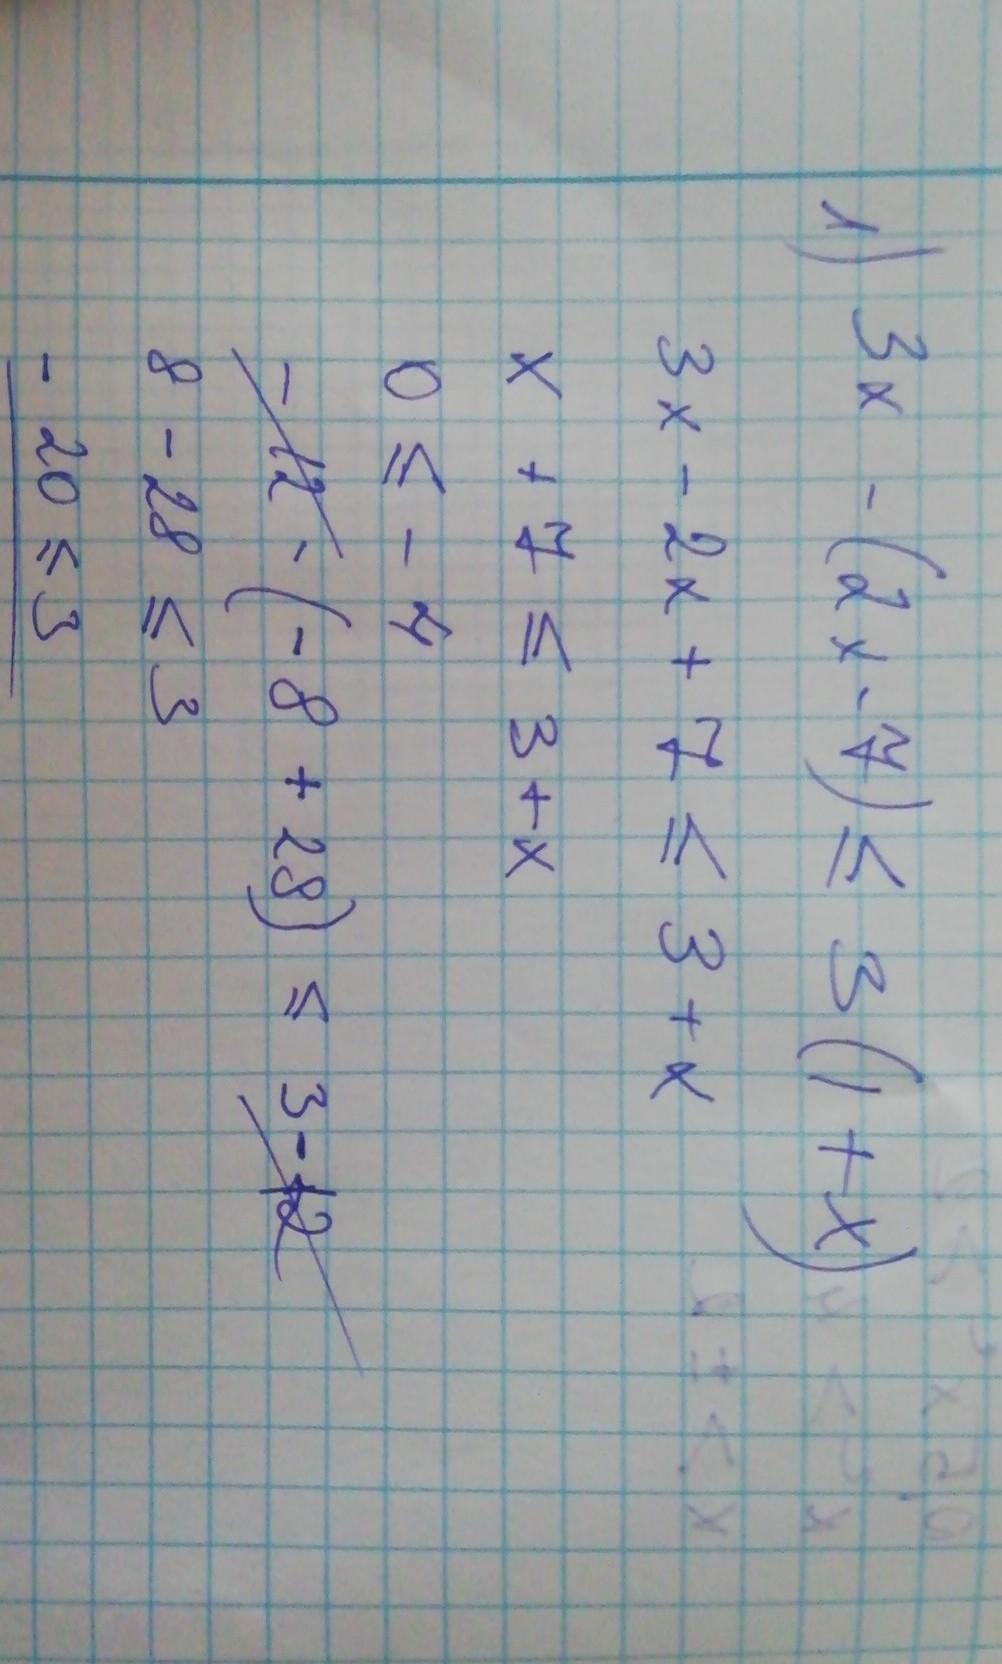 1) 3x - (2x - 7) ≤ 3(1 + x)
3x - 2x + 7 ≤ 3 + x
x + 7 ≤ 3 + x
0 ≤ - 4
- 12 - (- 8 + 28) ≤ 3 - 12
8 - 28 ≤ 3
- 20 ≤ 3